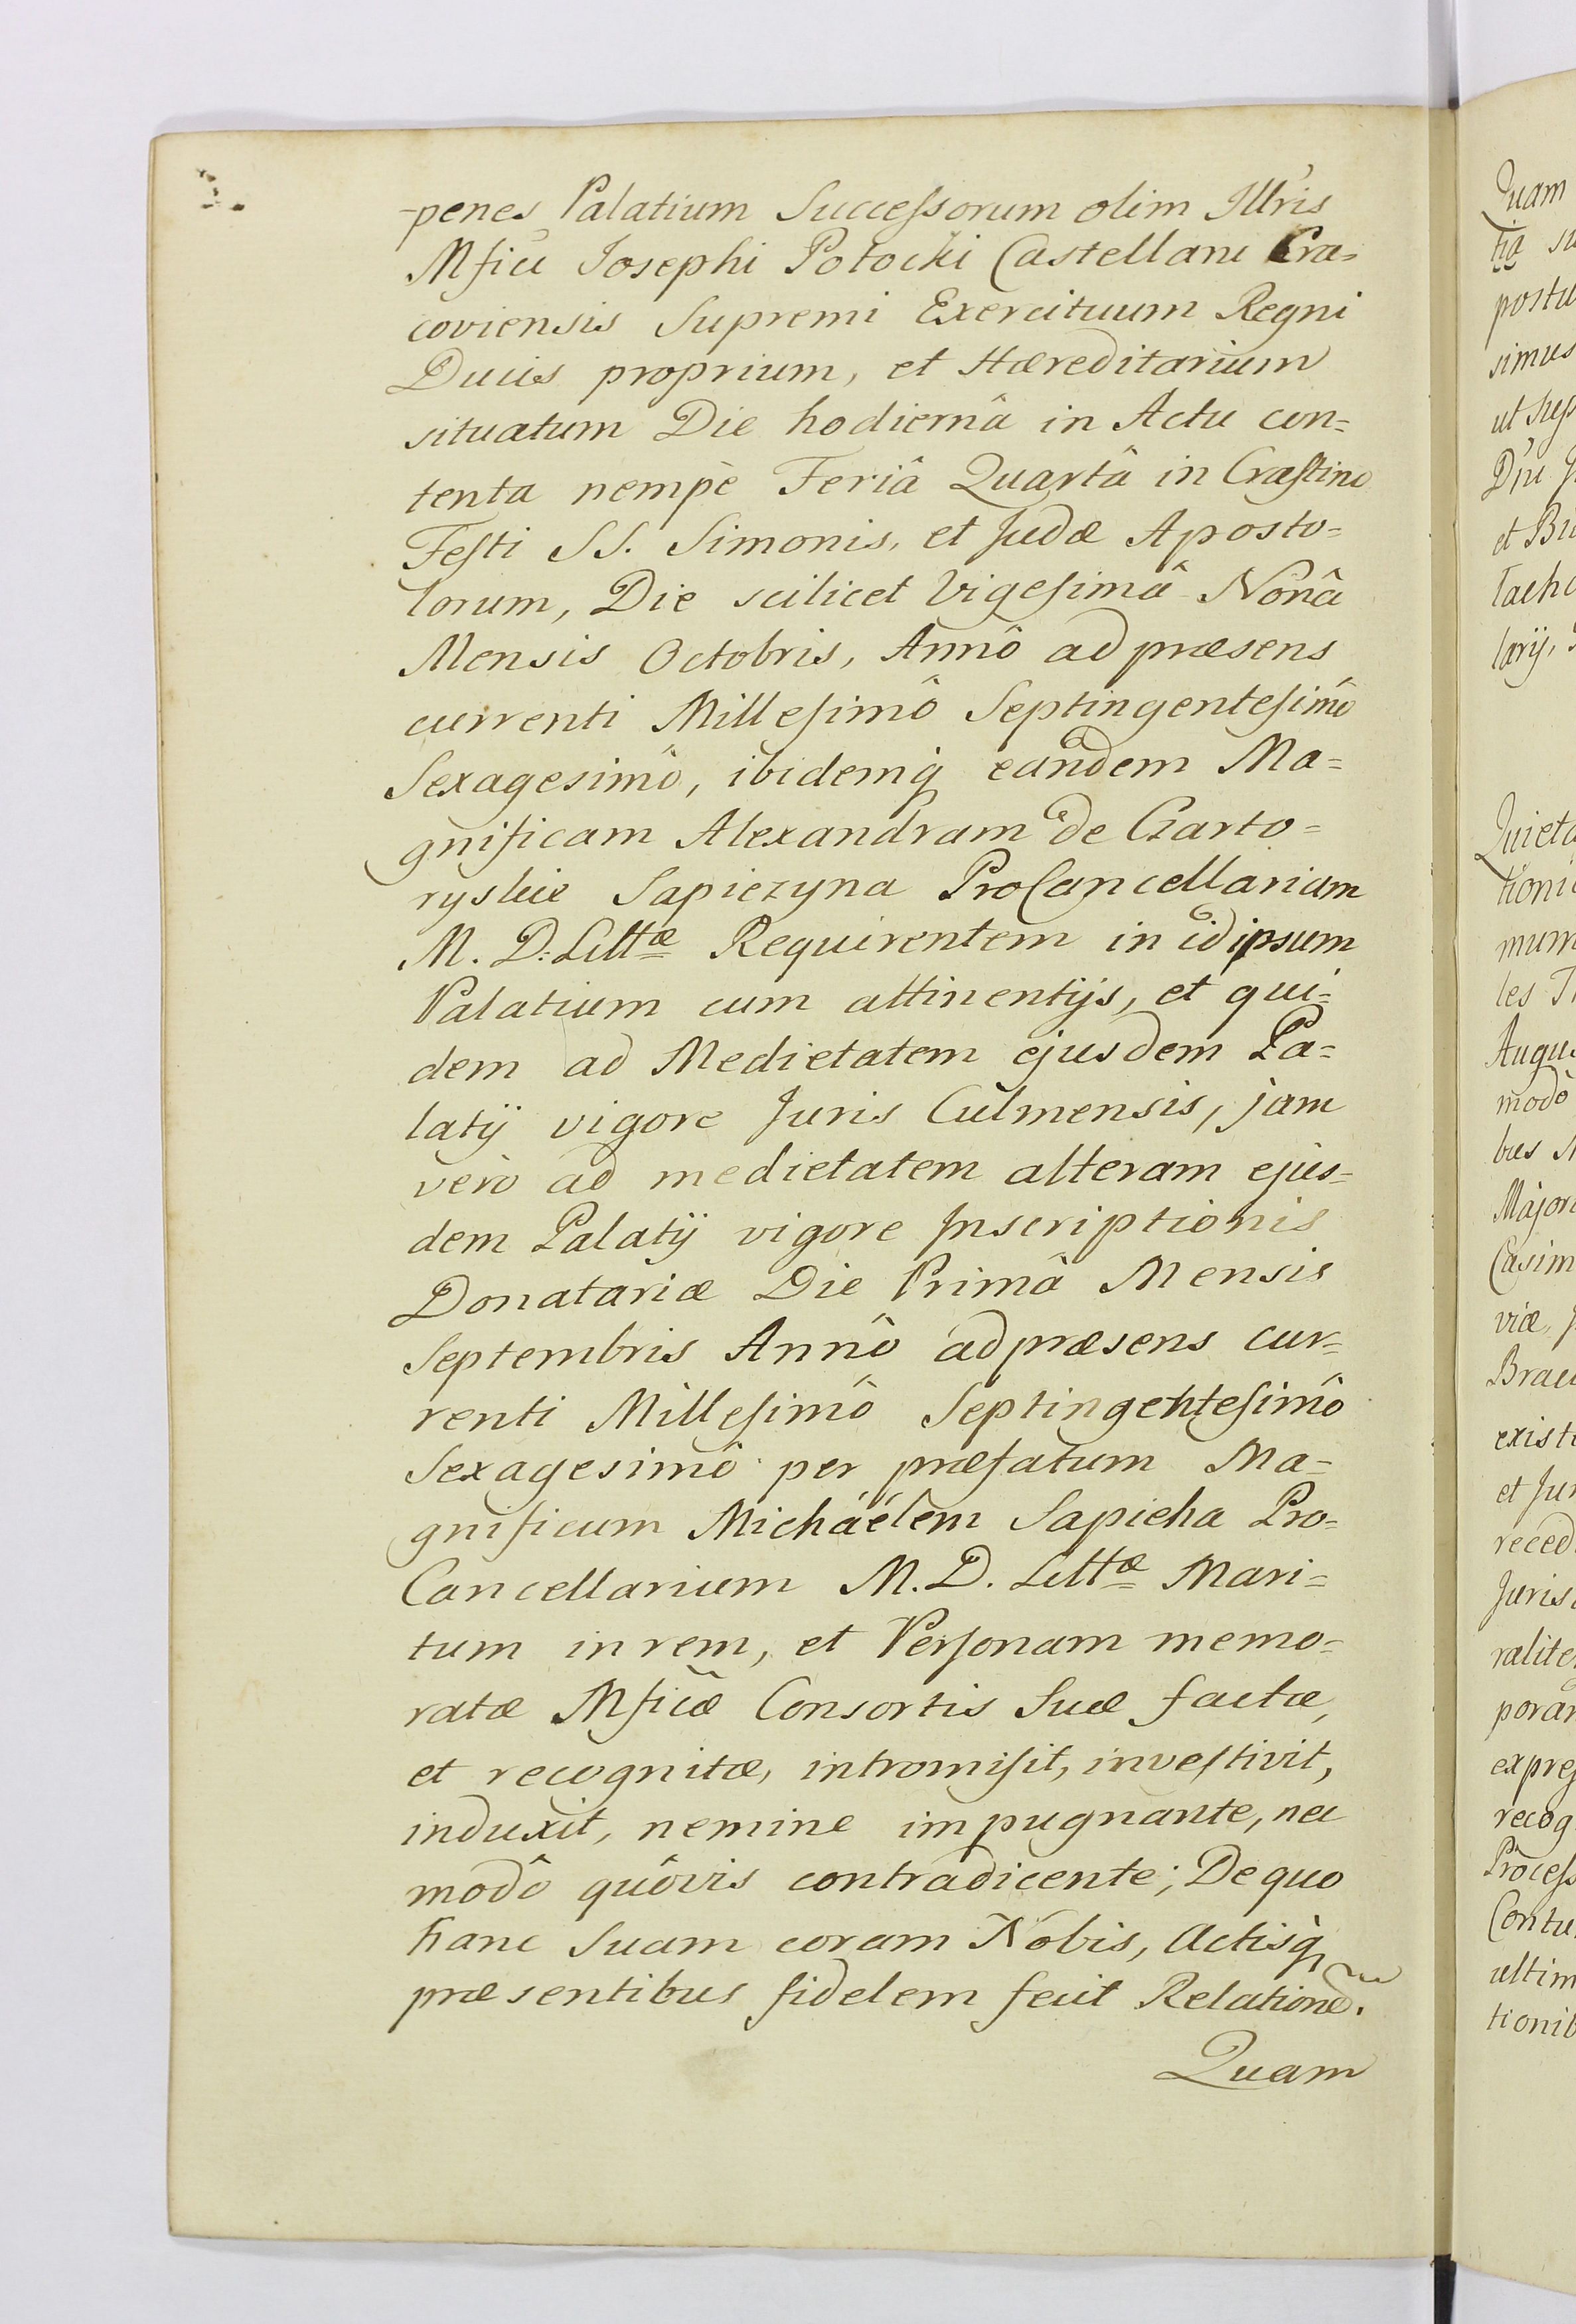 -penes Palatium Successorum olim Illris
Mfici Josephi Potocki Castellani Cra=
coviensis Supremi Exercituum Regni
Ducis proprium, et Hæreditarium
situatum Die hodiernâ in Actu con=
tenta nempè Feriâ Quartâ in Crastino
Festi SS. Simonis, et Judæ Aposto=
lorum, Die scilicet Vigesimâ Nonâ
Mensis Octobris, Annô ad præsens
currenti Millesimô Septingentesimô
Sexagesimô, ibidemq; eandem Ma=
gnificam Alexandram de Czarto=
ryskie Sapiezyna ProCancellariam
M. D. Littæ Requirentem in id ipsum
Palatium cum attinentijs, et qui=
dem ad Medietatem ejusdem Pa=
latij vigore Juris Culmensis, jam
verò ad medietatem alteram ejus=
dem Palatij vigore Inscriptionis
Donatariæ Die Primâ Mensis
Septembris Annô ad præsens cur=
renti Millesimô Septingentesimô
Sexagesimô per præfatum Ma=
gnificum Michaélem Sapieha Pro=
Cancellarium M. D. Littæ Mari=
tum in rem, et Personam memo=
ratæ Mficæ Consortis Suæ factæ,
et recognitæ, intromisit, investivit,
induxit, nemine impugnante, nec
modô quôvis contradicente; De quo
hanc Suam coram Nobis, Actisq;
præsentibus fidelem fecit Relationē.
Quam
Quam
postu
simus
et Bu
larij,
Quieta
mum
les
Augus
modò
bus
Majori
Casim
viæ,
Brac
existe
et Jur
reced
Juris
ralite
poran
expres
recog
Process
Contu
ultim
tionib